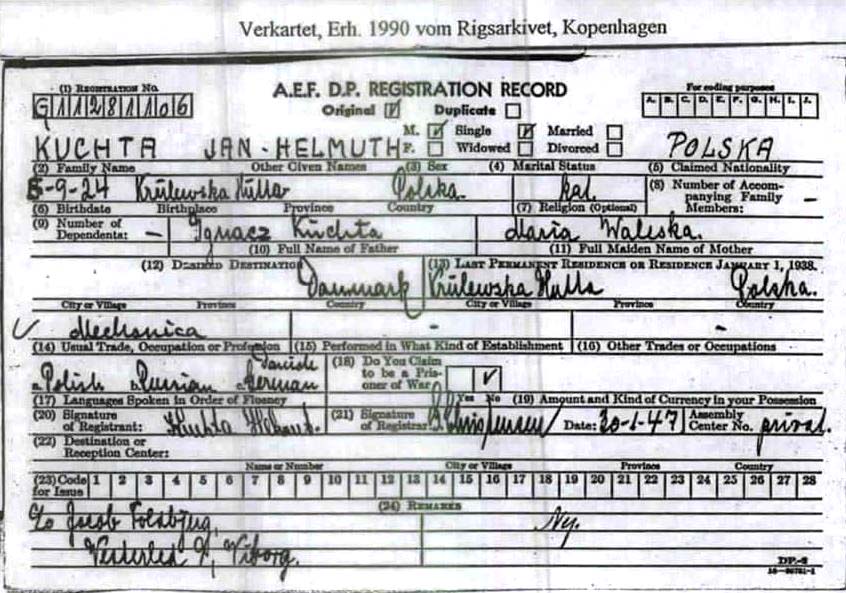 Verkartet, Erh. 1990 vom Rigsarkivet, Kopenhagen
(1) REGISTRATION NO.
G11281106
A.E.F. D.P. REGISTRATION RECORD
Original Duplicate
For coding purposes
A. B. C. D. E. F. G. H. I. J.
M. Single Married
KUCHTA JAN-HELMUTH F. Widowed Divorced POLSKA
(2) Family Name Other Given Names (3) Sex (4) Marital Status (5) Claimed Nationality
5-9-24 Krülewska Hutta Polska. kat. (8) Number of Accompanying Family Members: -
(6) Birthdate Birthplace Province Country (7) Religion (Optional)
(9) Number of Dependents: - Ignacz Kuchta Maria Waleska.
(10) Full Name of Father (11) Full Maiden Name of Mother
(12) DESIRED DESTINATION (13) LAST PERMANENT RESIDENCE OR RESIDENCE JANUARY 1, 1938.
Danmark Krülewska Hutta Polska.
City or Village Province Country City or Village Province Country
Mechanica - -
(14) Usual Trade, Occupation or Profession (15) Performed in What Kind of Establishment (16) Other Trades or Occupations
Danish
a. Polish b. Russian c. German (18) Do You Claim to be a Prisoner of War
(17) Languages Spoken in Order of Fluency Yes No (19) Amount and Kind of Currency in your Possession
(20) Signature of Registrant: Kuchta (21) Signature of Registrar: Date: 30-1-47 Assembly Center No. privat.
(22) Destination or Reception Center:
Name or Number City or Village Province Country
(23) Code for Issue 1 2 3 4 5 6 7 8 9 10 11 12 13 14 15 16 17 18 19 20 21 22 23 24 25 26 27 28
(24) REMARKS
c/o Jacob Ny.
Viborg.
DP-2